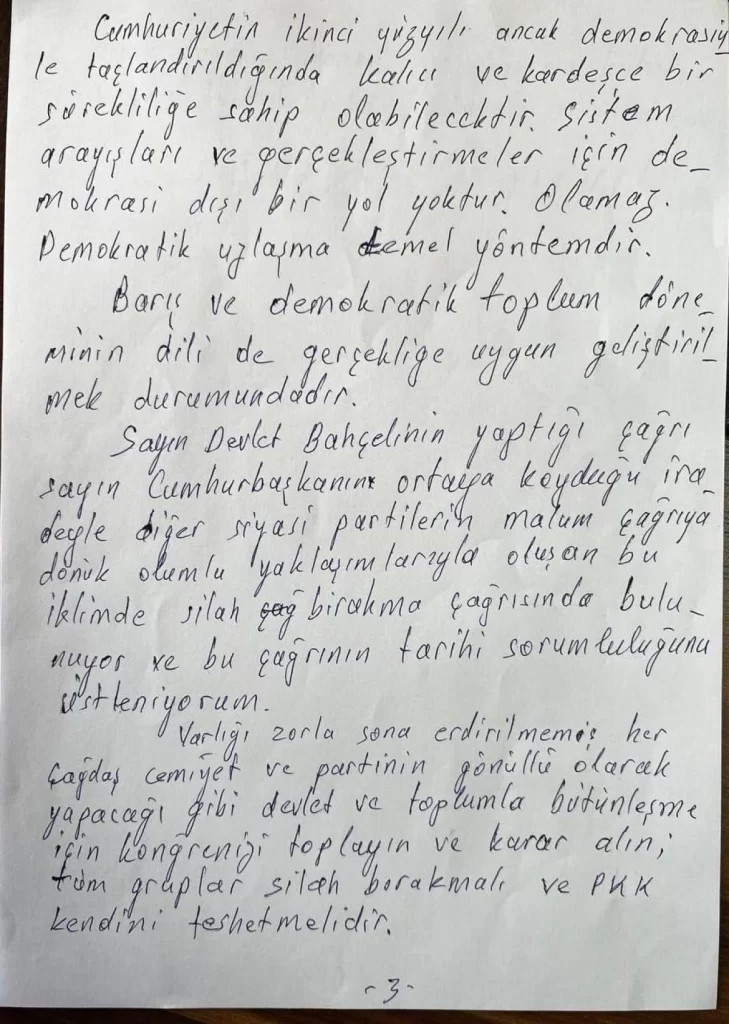 Cumhuriyetin ikinci yüzyılı ancak demokrasiy
le taçlandırıldığında kalıcı ve kardeşçe bir
sürekliliğe sahip olabilecektir. Sistem
arayışları ve gerçekleştirmeler için de_
mokrasi dışı bir yol yoktur. Olamaz.
Demokratik uzlaşma temel yöntemdir.
Barış ve demokratik toplum döne_
minin dili de gerçekliğe uygun geliştiril_
mek durumundadır.
Sayın Devlet Bahçelinin yaptığı çağrı
sayın Cumhurbaşkanın ortaya koyduğu ira_
deyle diğer siyasi partilerin malum çağrıya
dönük olumlu yaklaşımlarıyla oluşan bu
iklimde silah çağ bırakma çağrısında bulu_
nuyor ve bu çağrının tarihi sorumluluğunu
üstleniyorum.
Varlığı zorla sona erdirilmemiş her
çağdaş cemiyet ve partinin gönüllü olarak
yapacağı gibi devlet ve toplumla bütünleşme
için kongrenizi toplayın ve karar alın;
tüm gruplar silah bırakmalı ve PKK
kendini feshetmelidir.
-3-